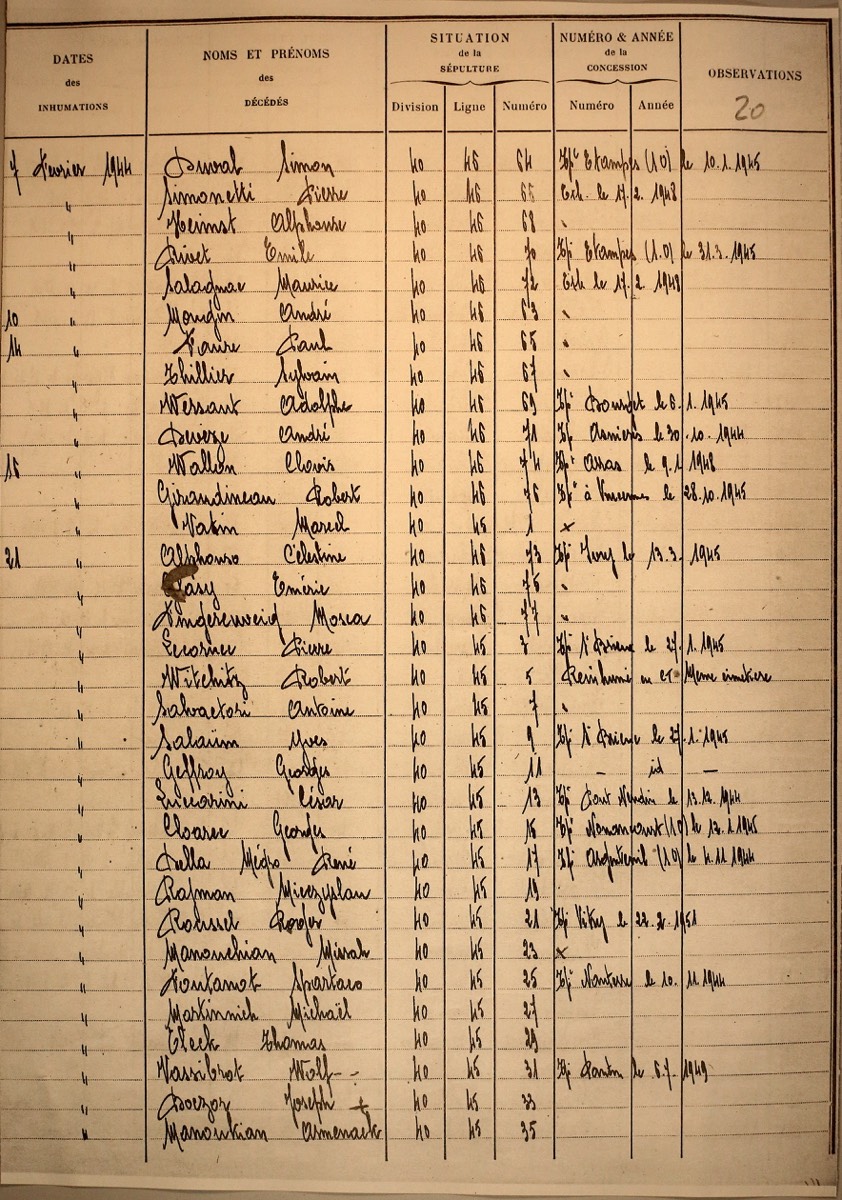 DATES des INHUMATIONS NOMS ET PRÉNOMS des DÉCÉDÉS SITUATION de la SÉPULTURE NUMÉRO & ANNÉE de la CONCESSION OBSERVATIONS
Division Ligne Numéro Numéro Année 20
7 Février 1944 Duval Simon 40 46 64 Tpé Etampes (1.0) le 10.1.1945
" Simonetti Pierre 40 46 66 Exh. le 17.2.1948
" Heimst Alphonse 40 46 68 "
" Rivet Emile 40 46 70 Tpé Etampes (1.0) le 31.3.1945
" Salagnac Maurice 40 46 72 Exh le 17.2.1948
10 " Mougin André 40 46 63 "
14 " Faure Paul 40 46 65 "
" Thillier Sylvain 40 46 67 "
" Wessant Adolphe 40 46 69 Tpé le 6.1.1945
" Devèze André 40 46 71 Tpé Asnières le 30.10.1944
16 " Wallon Clovis 40 46 74 Tpé Arras le 9.1.1948
" Giraudineau Robert 40 46 76 Tpé à Vincennes le 28.10.1945
" Vatin Marcel 40 45 1 x
21 " Alphonso Célestine 40 46 73 Tpé Ivry le 13.3.1945
" Emérie 40 46 75 "
" Fingercweig Mosca 40 46 77 "
" Lecornec Pierre 40 45 3 Tpé St Brieuc le 27.1.1945
" Witchitz Robert 40 45 5 Réinhumé en ce Même cimetière
" Salvactori Antoine 40 45 7 "
" Salaüm Yves 40 45 9 Tpé St Brieuc le 27.1.1945
" Geffroy Georges 40 45 11 — id —
" Luccarini César 40 45 13 Tpé Pont Vendin le 13.12.1944
" Cloarec Georges 40 45 15 Tpé Nonancourt (1.0) le 12.1.1945
" Della Mégro René 40 45 17 Tpé Argenteuil (1.0) le 4.11.1944
" Rajman Mieczyslau 40 45 19
" Roussel Roger 40 45 21 Tpé Vitry le 22.2.1951
" Manouchian Missak 40 45 23 x
" Fontanot Spartaco 40 45 25 Tpé Nanterre le 10.11.1944
" Martinnich Michaël 40 45 27
" Eleck Thomas 40 45 29
" Vassibrot Wolf - - 40 45 31 Tpé Pantin le 6.7.1949
" Boczor Joseph + 40 45 33
" Manoukian Armenack 40 45 35